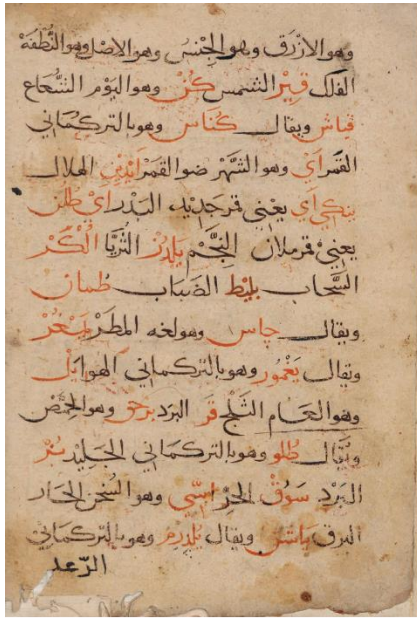 وهو الازرق وهو الجنس وهو الاصل وهو النطفة
الفلك الشمس كن وهو اليوم الشعاع
قياش ويقال كناس وهو بالتركماني
القمر اي وهو الشهر ضو القمر ايدين الهلال
ينكي اي يعني قمر جديد البدر اي طلن
يعني قمر ملان النجم يلدز الثريا الكر
السحاب بليط الضباب طمان
ويقال جاس وهو لغه المطر يمغر
ويقال يغمور وهو بالتركماني الهوا يل
وهو العام الثلج قر البرد برجق وهو الحمص
ويقال طلو وهو بالتركماني الجليد بز
البرد سوق الحر اسي وهو السخن الحار
البرق ياشن ويقال يلدرم وهو بالتركماني
الرعد